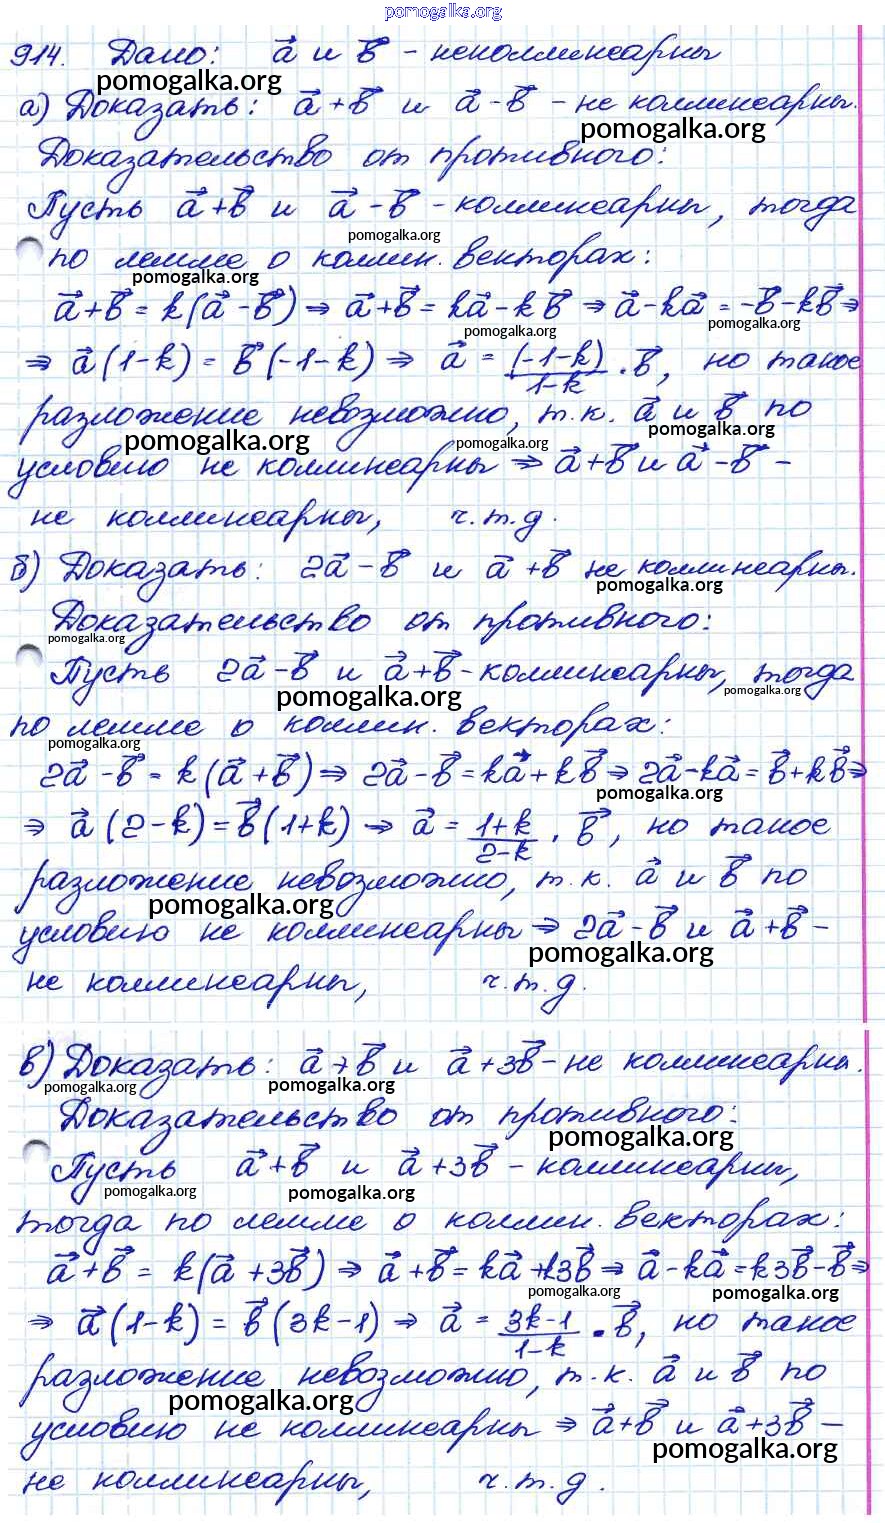 pomogalka.org
914. Дано: a⃗ и b⃗ - неколлинеарны
pomogalka.org
а) Доказать: a⃗+b⃗ и a⃗-b⃗ - не коллинеарны.
pomogalka.org
Доказательство от противного:
Пусть a⃗+b⃗ и a⃗-b⃗ - коллинеарны, тогда
pomogalka.org
по лемме о коллин. векторах:
pomogalka.org
a⃗+b⃗ = k(a⃗-b⃗) ⇒ a⃗+b⃗ = ka⃗-kb⃗ ⇒ a⃗-ka⃗ = -b⃗-kb⃗ ⇒
pomogalka.org pomogalka.org
⇒ a⃗(1-k) = b⃗(-1-k) ⇒ a⃗ = (-1-k)/1-k · b⃗, но такое
разложение невозможно, т.к. a⃗ и b⃗ по
pomogalka.org pomogalka.org pomogalka.org
условию не коллинеарны ⇒ a⃗+b⃗ и a⃗-b⃗ -
не коллинеарны, ч.т.д.
б) Доказать: 2a⃗-b⃗ и a⃗+b⃗ не коллинеарны.
pomogalka.org
Доказательство от противного:
pomogalka.org
Пусть 2a⃗-b⃗ и a⃗+b⃗ - коллинеарны, тогда
pomogalka.org pomogalka.org
по лемме о коллин. векторах:
pomogalka.org
2a⃗-b⃗ = k(a⃗+b⃗) ⇒ 2a⃗-b⃗ = ka⃗+kb⃗ ⇒ 2a⃗-ka⃗ = b⃗+kb⃗ ⇒
pomogalka.org
⇒ a⃗(2-k) = b⃗(1+k) ⇒ a⃗ = 1+k/2-k · b⃗, но такое
разложение невозможно, т.к. a⃗ и b⃗ по
pomogalka.org
условию не коллинеарны ⇒ 2a⃗-b⃗ и a⃗+b⃗ -
pomogalka.org
не коллинеарны, ч.т.д.
в) Доказать: a⃗+b⃗ и a⃗+3b⃗ - не коллинеарны.
pomogalka.org pomogalka.org
Доказательство от противного:
pomogalka.org
Пусть a⃗+b⃗ и a⃗+3b⃗ - коллинеарны,
pomogalka.org pomogalka.org
тогда по лемме о коллин. векторах:
a⃗+b⃗ = k(a⃗+3b⃗) ⇒ a⃗+b⃗ = ka⃗+k3b⃗ ⇒ a⃗-ka⃗ = k3b⃗-b⃗ ⇒
pomogalka.org pomogalka.org
⇒ a⃗(1-k) = b⃗(3k-1) ⇒ a⃗ = 3k-1/1-k · b⃗, но такое
разложение невозможно, т.к. a⃗ и b⃗ по
pomogalka.org
условию не коллинеарны ⇒ a⃗+b⃗ и a⃗+3b⃗ -
pomogalka.org
не коллинеарны, ч.т.д.